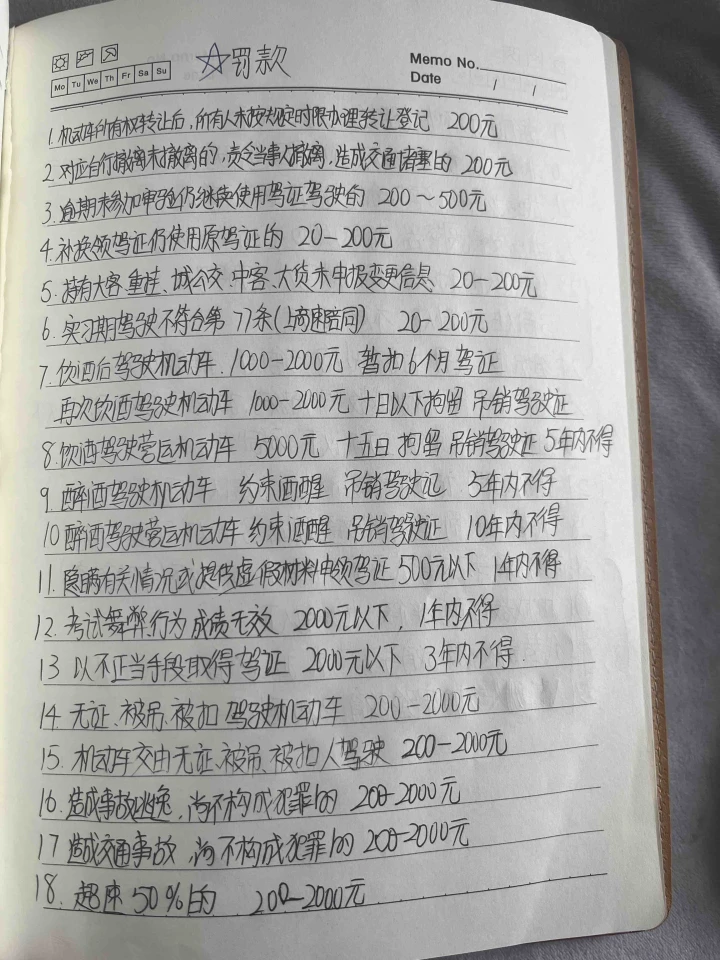 ☆罚款
Memo No.
Mo Tu We Th Fr Sa Su
Date / /
1. 机动车所有权转让后，所有人未按规定时限办理转让登记 200元
2. 对应自行撤离未撤离的，责令当事人撤离，造成交通堵塞的 200元
3. 逾期未参加审验仍继续使用驾证驾驶的 200～500元
4. 补换领驾证仍使用原驾证的 20-200元
5. 持有大客、重挂、城公交、中客、大货未申报变更信息 20-200元
6. 实习期驾驶不符合第77条(上高速陪同) 20-200元
7. 饮酒后驾驶机动车. 1000-2000元 暂扣6个月驾证
再次饮酒驾驶机动车 1000-2000元 十日以下拘留 吊销驾驶证
8. 饮酒驾驶营运机动车 5000元 十五日 拘留 吊销驾驶证 5年内不得
9. 醉酒驾驶机动车 约束酒醒 吊销驾驶证 5年内不得
10 醉酒驾驶营运机动车 约束酒醒 吊销驾驶证 10年内不得
11. 隐瞒有关情况或提供虚假材料申领驾证 500元以下 1年内不得
12. 考试舞弊行为成绩无效 2000元以下，1年内不得
13 以不正当手段取得驾证 2000元以下 3年内不得.
14. 无证、被吊、被扣 驾驶机动车 200-2000元
15. 机动车交由无证、被吊、被扣人驾驶 200-2000元
16. 造成事故逃逸，尚不构成犯罪的 200-2000元
17 造成交通事故，尚不构成犯罪的 200-2000元
18. 超速50%的 200-2000元